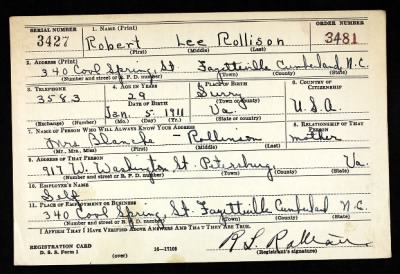 SERIAL NUMBER 1. NAME (Print) ORDER NUMBER
3427 Robert Lee Rollison 3481
(First) (Middle) (Last)
2. ADDRESS (Print)
340 Cool Spring St. Fayetteville Cumberland N.C.
(Number and street or R. F. D. number) (Town) (County) (State)
3. TELEPHONE 4. AGE IN YEARS 5. PLACE OF BIRTH 6. COUNTRY OF CITIZENSHIP
3583 29 Surry
DATE OF BIRTH (Town or county)
Jan. 5 1911 Va. U.S.A.
(Exchange) (Number) (Mo.) (Day) (Yr.) (State or country)
7. NAME OF PERSON WHO WILL ALWAYS KNOW YOUR ADDRESS 8. RELATIONSHIP OF THAT PERSON
Mrs Blanche - Rollinson mother
(Mr., Mrs., Miss) (First) (Middle) (Last)
9. ADDRESS OF THAT PERSON
917 W. Washington St. Petersburg, Va.
(Number and street or R. F. D. number) (Town) (County) (State)
10. EMPLOYER'S NAME
Self
11. PLACE OF EMPLOYMENT OR BUSINESS
340 Cool Spring, St. Fayetteville Cumberland N.C.
(Number and street or R. F. D. number) (Town) (County) (State)
I AFFIRM THAT I HAVE VERIFIED ABOVE ANSWERS AND THAT THEY ARE TRUE.
REGISTRATION CARD
D. S. S. Form 1 (over) 16—17105 (Registrant's signature)